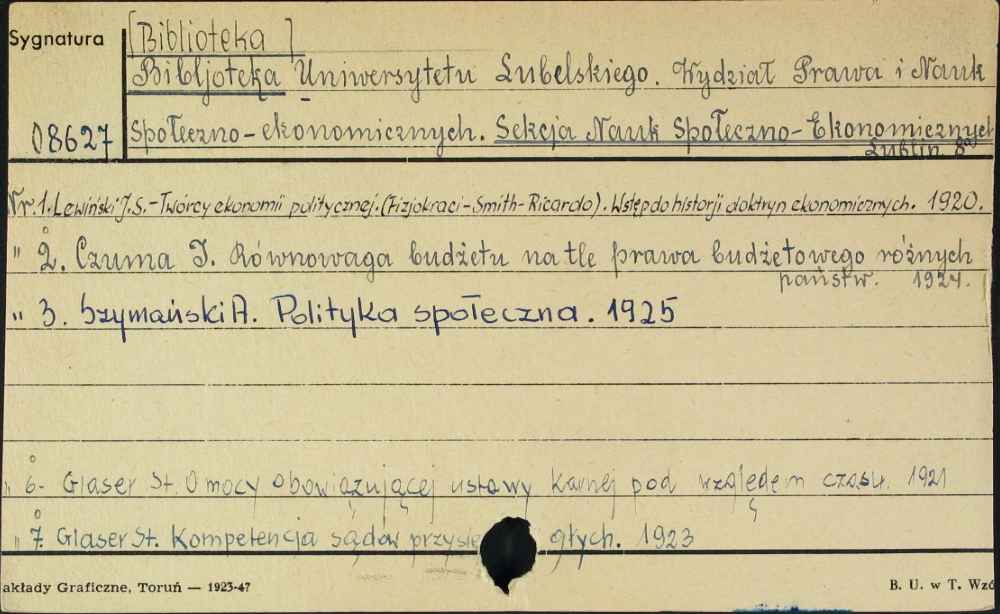 Sygnatura
[Biblioteka]
Bibljoteka Uniwersytetu Lubelskiego. Wydział Prawa i Nauk
08627
Społeczno-ekonomicznych. Sekcja Nauk Społeczno-Ekonomicznych
Lublin 8°
Nr.1. Lewiński J.S.-Twórcy ekonomii politycznej.(Fizjokraci-Smith-Ricardo). Wstęp do historji doktryn ekonomicznych. 1920.
" 2. Czuma I. Równowaga budżetu na tle prawa budżetowego różnych
państw. 1924.
" 3. Szymański A. Polityka społeczna. 1925
" 6- Glaser St. O mocy obowiązującej ustawy karnej pod względem czasu. 1921
" 7. Glaser St. Kompetencja sądów przysięgłych. 1923
akłady Graficzne, Toruń — 1923-47
B. U. w T. Wzó